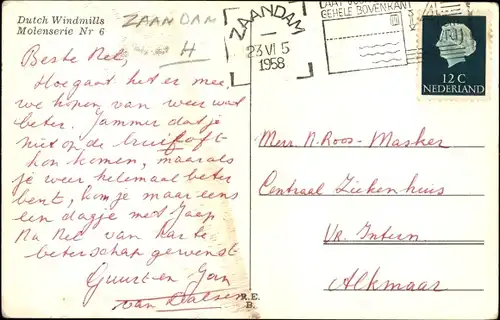 Dutch Windmills
Molenserie Nr 6
ZAANDAM
H
ZAANDAM
23 VI 5
1958
GEHELE BOVENKANT
12 C
NEDERLAND
Beste Nel,
Hoe gaat het er mee,
we hopen van weer wat
beter. Jammer dat je
niet op de bruiloft
kon komen, maar als
je weer helemaal beter
bent, kom je maar eens
een dagje met Jaap
Na Nel van harte
beterschap gewenst
Guurt en Jan
van
Mevr. N. Roos-Masker
Centraal Ziekenhuis
Vr. Intern
Alkmaar
R.E.
B.